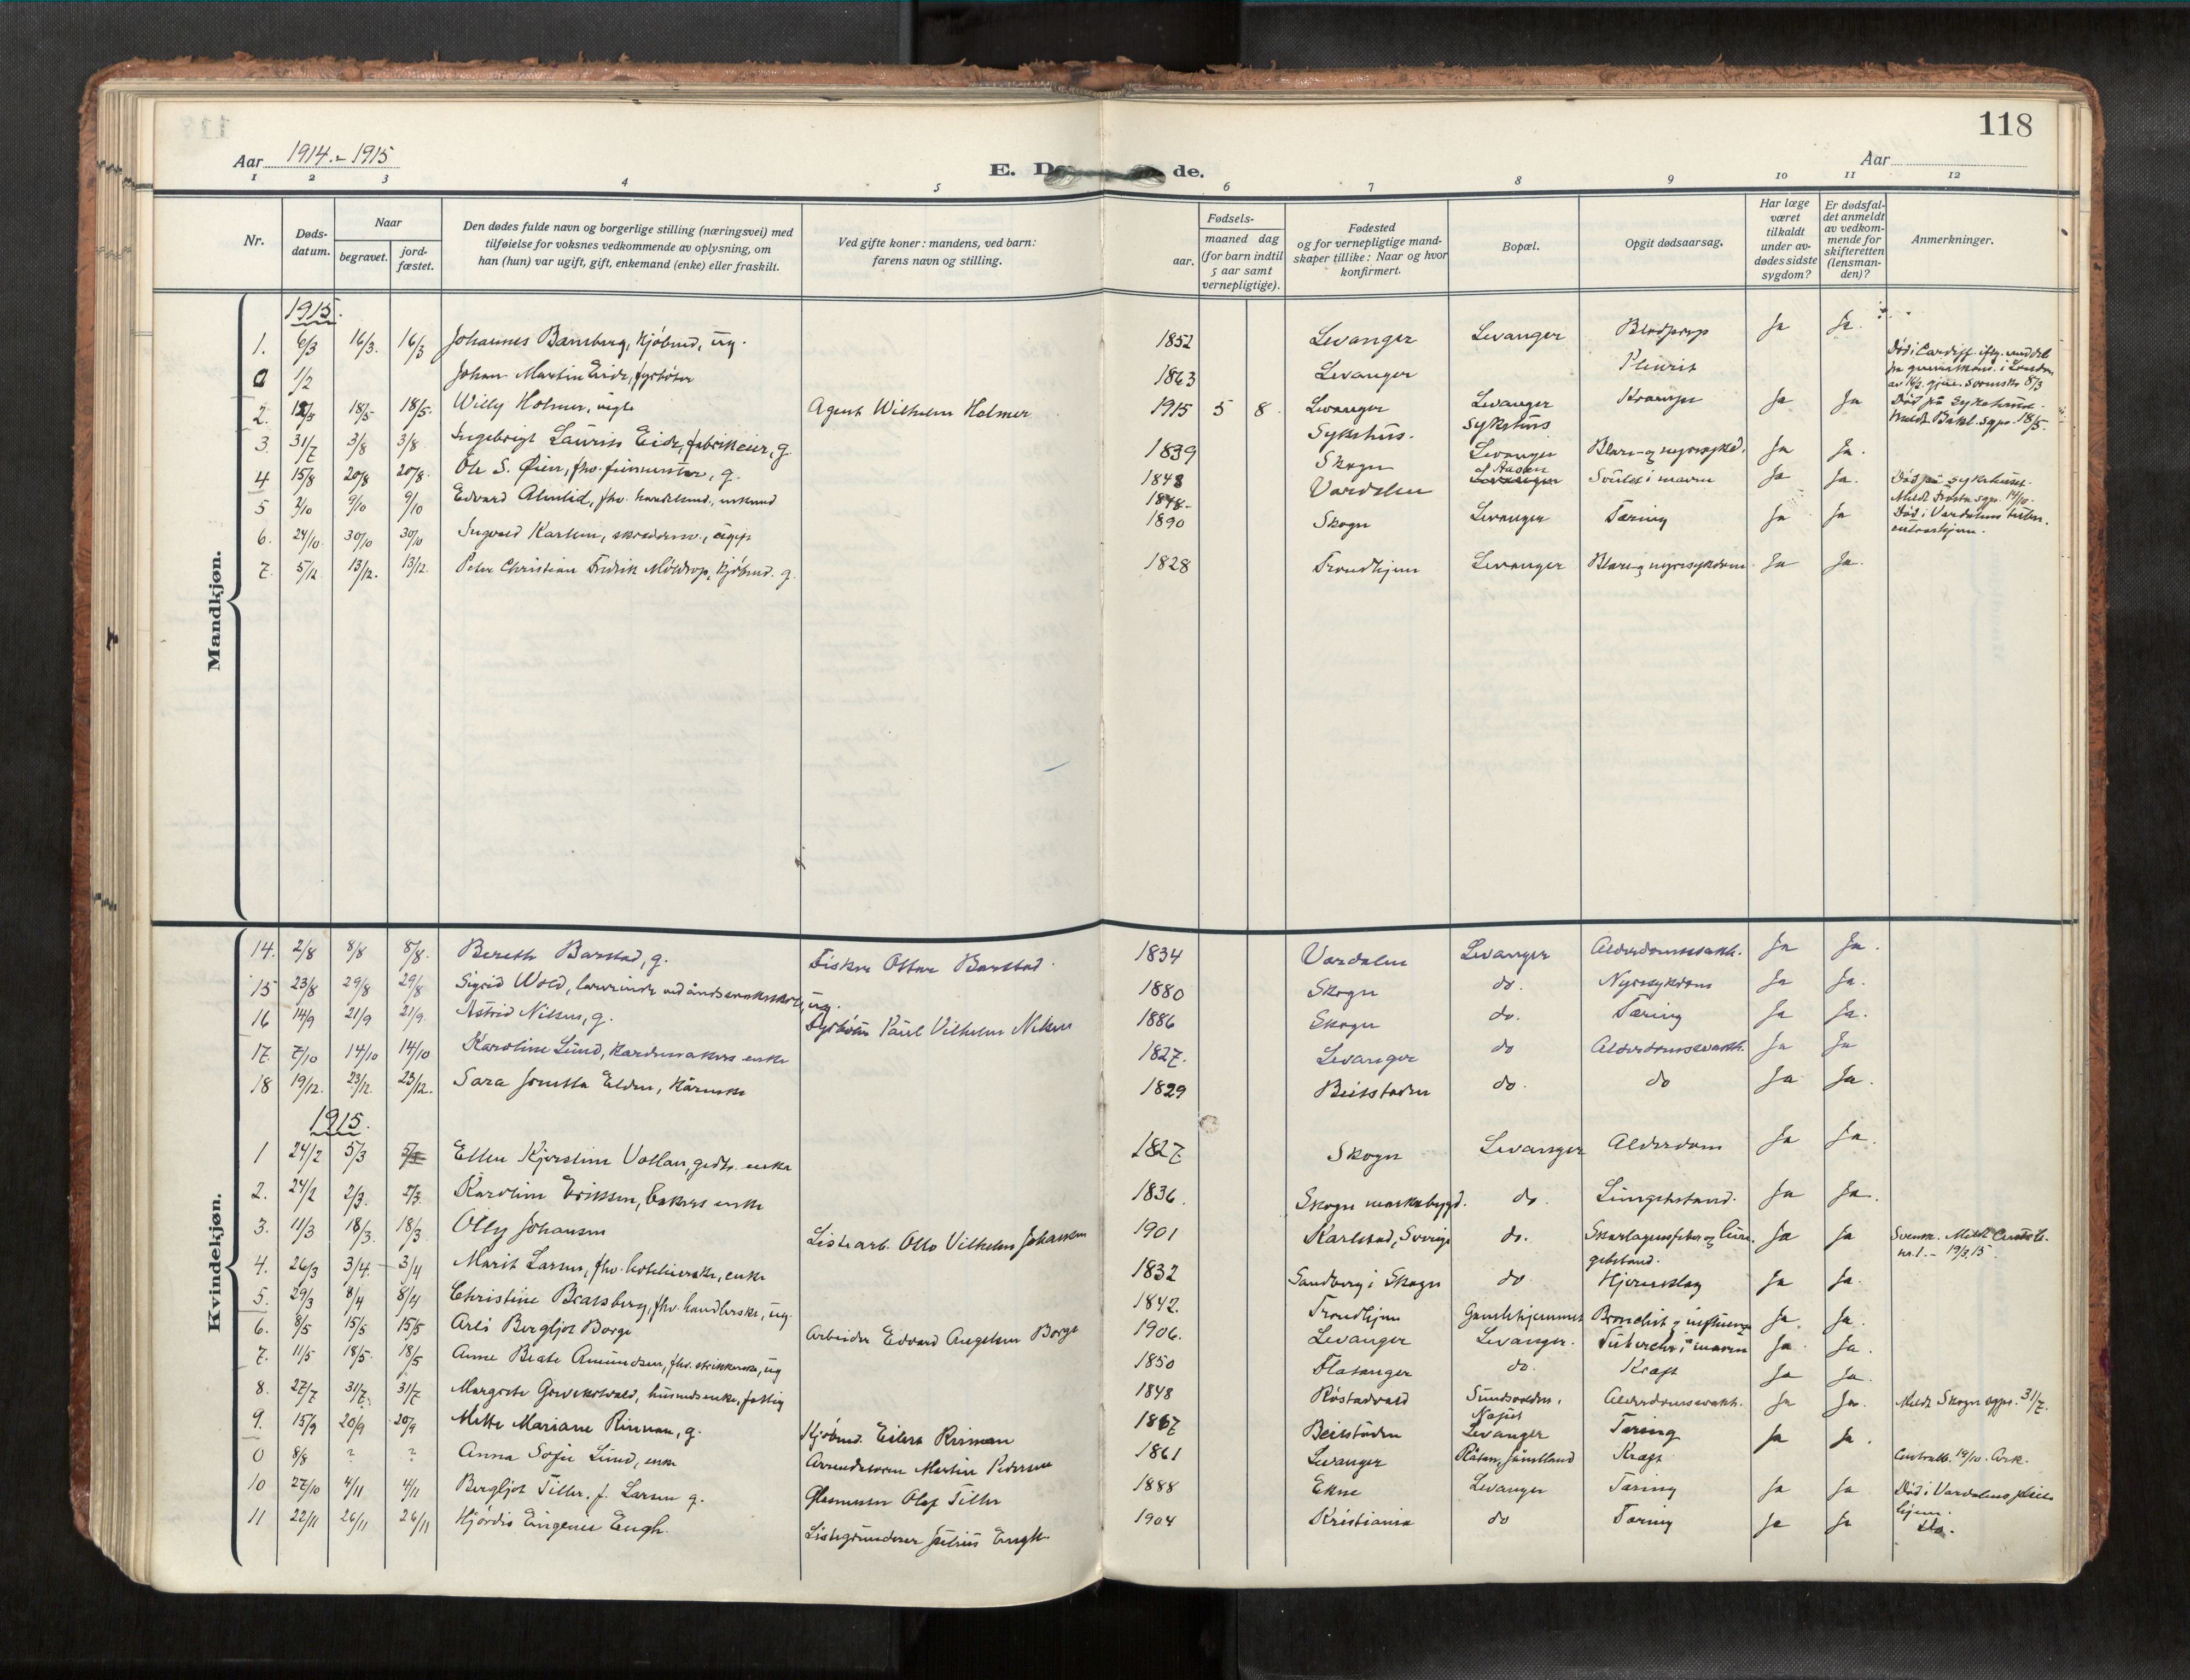 118
Aar 1914 - 1915
E. D de.
Aar
1 2 3 4 5 6 7 8 9 10 11 12
Nr.
Døds-datum.
Naar
begravet.
jord-fæstet.
Den dødes fulde navn og borgerlige stilling (næringsvei) med
tilføielse for voksnes vedkommende av oplysning, om
han (hun) var ugift, gift, enkemand (enke) eller fraskilt.
Ved gifte koner: mandens, ved barn:
farens navn og stilling.
Fødsels-
aar.
maaned dag
(for barn indtil
5 aar samt
vernepligtige).
Fødested
og for vernepligtige mand-
skaper tillike: Naar og hvor
konfirmert.
Bopæl.
Opgit dødsaarsag.
Har læge
været
tilkaldt
under av-
dødes sidste
sygdom?
Er dødsfal-
det anmeldt
av vedkom-
mende for
skifteretten
(lensman-
den)?
Anmerkninger.
Mandkjøn.
1915.
1. 6/3 16/3. 16/3 Johannes Bamberg, kjøbmd, ug. 1852 Levanger Levanger Ja Ja.
0 1/2 Johan Martin Eide, fyrbøter 1863 Levanger Pleurit Død i Cardiff
2. 18/5 18/5. Willy Holmer, Agent Wilhelm Holmer 1915 5 8 Levanger Sykehus. Levanger sykehus Krampe Ja Ja Død på Sykehuset. Meldt Bakl. sgpr. 18/5.
3. 31/7 3/8 3/8 Ingebrigt Laurits Eide, fabrikeier, g. 1839 Skogn Levanger Blære- og nyresykd. Ja Ja.
4 15/8 20/8 20/8. Ole S. Øien, fhv. g. 1848 Værdalen Aasen Svulst i maven Ja Ja. Død på sykehuset. Meldt Frosta sgpr. 14/10.
5 2/10 9/10 9/10 Edvard Almlid, fhv. handelsmd., enkemd 1848. Levanger Tæring Ja Ja Død i Værdalens
6. 24/10. 30/10 30/10 Ingvald Karlsen, ugift 1890 Skogn
7. 5/12 13/12. 13/12. Peter Christian Fredrik Möldrop, kjøbmd. g. 1828 Trondhjem Levanger Blære- og nyresykdom Ja Ja.
Kvindekjøn.
14. 2/8 8/8 8/8. Bereth Barstad, g. Fisker Ottar Barstad. 1834 Værdalen Levanger Alderdomssvakh. Ja Ja.
15 23/8 29/8 29/8 Sigrid Wold, lærerinde ved åndssvakeskole, ug. 1880 Skogn do. Nyresykdom Ja Ja.
16 14/9 21/9 21/9. Astrid Nilsen, g. Fyrbøter Paul Vilhelm Nilsen 1886 Skogn do. Tæring Ja Ja.
17. 7/10 14/10 14/10 Karoline Lund, kardemakers enke 1827. Levanger do Alderdomssvakh. Ja Ja
18 19/12. 23/12. 23/12. Sara Jonetta Elden, kårenke 1829 Beitstaden do. do Ja Ja.
1915.
1 24/2 5/3 5/3 Ellen Kjerstine Vollan, grdbr. enke 1827 Skogn Levanger Alderdom Ja Ja.
2. 24/2 2/3. 2/3. Karoline Eriksen, bakers enke 1836. Skogn markabygd. do. Lungebetænd. Ja Ja.
3. 11/3 18/3. 18/3 Olly Johansen Listearb. Otto Vilhelm Johansen 1901 Karlstad, Sverige do. Skarlagensfeber og lungebetænd. Ja Ja Svensk. Meldt nr. 1. - 19/3. 15.
4. 26/3 3/4. 3/4 Marit Larsen, fhv. hotelierske, enke 1832 Sandberg i Skogn do. Hjerneslag Ja Ja.
5. 29/3 8/4 8/4 Christine Bratsberg, fhv. handlerske, ug. 1842. Trondhjem Gamlehjemmet Bronchit og influenza Ja. Ja.
6. 8/5 15/5 15/5 Bergljot Borge Arbeider Edvard Angelsen Borge 1906. Levanger Levanger. Tuberchl. i maven Ja. Ja.
7. 11/5 18/5. 18/5 Anne Beate Amundsen, fhv. strikkerske, ug 1850 Flatanger do. Kræft Ja Ja.
8. 27/7 31/7. 31/7 Margrete husmdsenke, fattig 1848 Røstadvald Alderdomssvakh. Ja Ja. Meldt Skogn sgpr. 31/7.
9. 15/9 20/9 20/9 Mette Mariane Rinnan, g. Kjøbmd. Eilert Rinnan 1867 Beitstaden Levanger Tæring Ja Ja.
0 8/8 ? ? Anna Sofie Lund, enke Martin Pedersen 1861 Levanger Kræft 19/10.
10 27/10 4/11 4/11 Bergljot Tiller, f. Larsen g. Glasmester Olaf Tiller 1888 Ekne Levanger Tæring Ja Ja Død i Værdalens pleiehjem.
11 22/11 26/11 26/11 Hjördis Eugenie Engh Listegrunderer Julius Engh 1904 Kristiania do Tæring Ja Ja do.